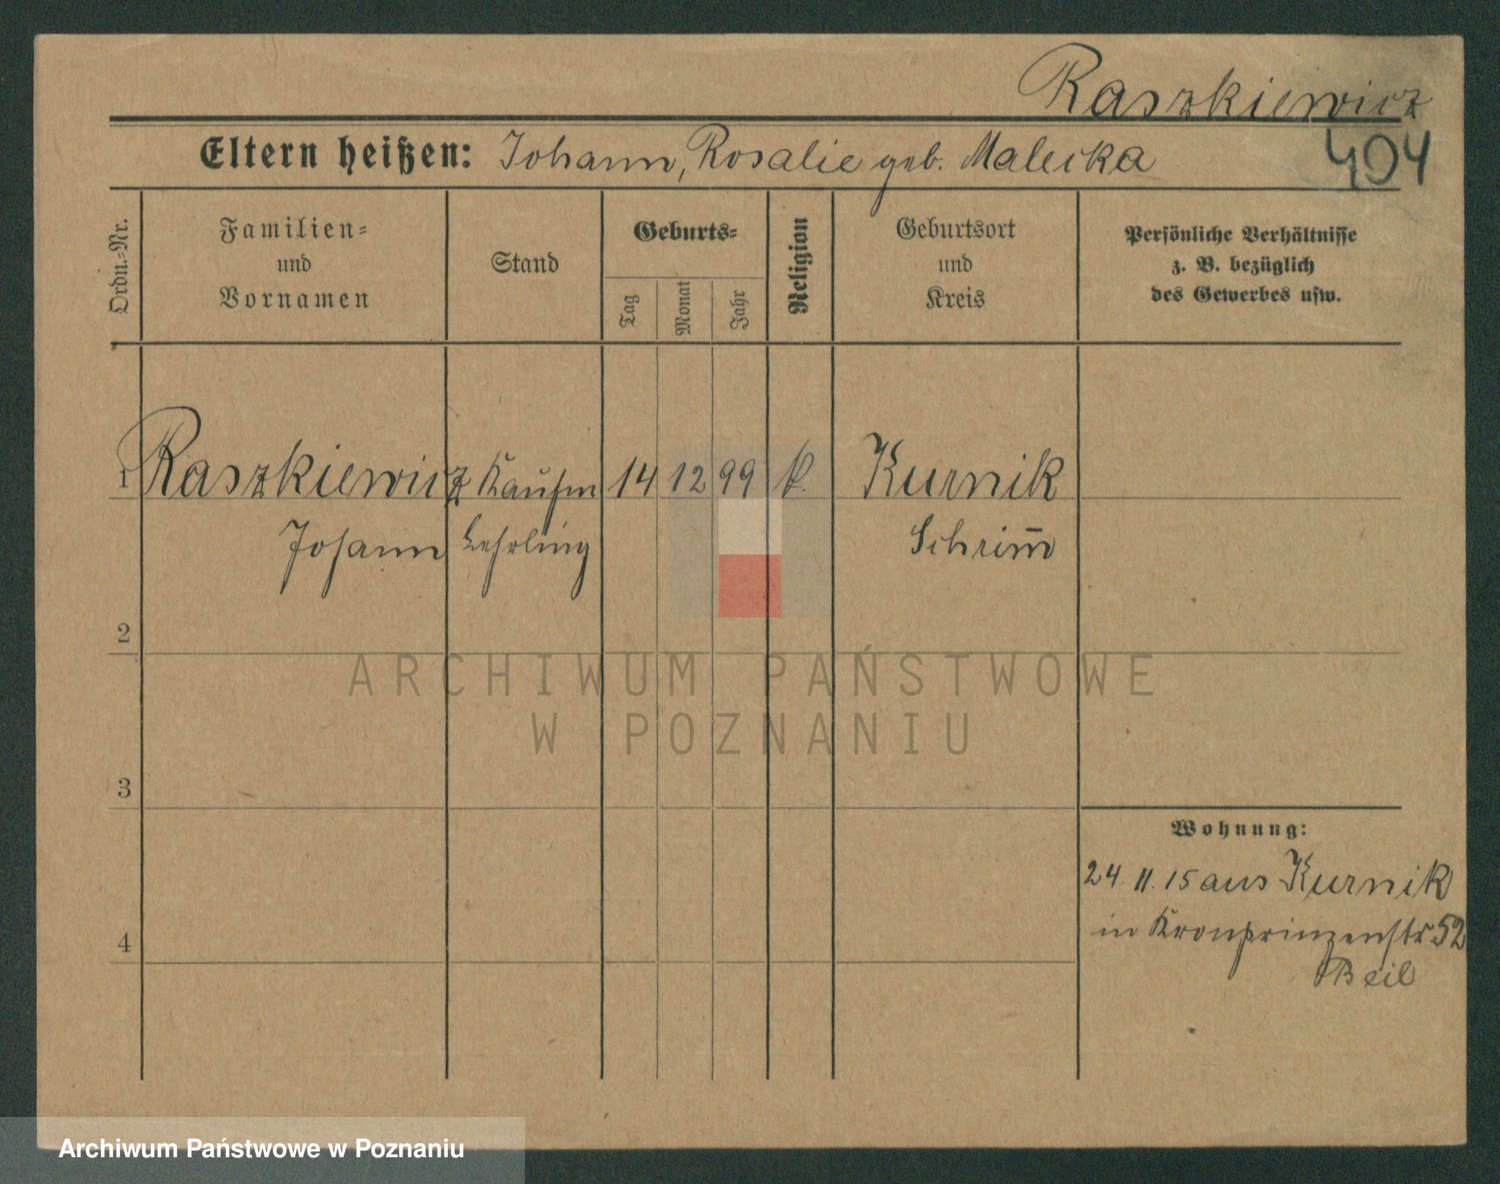 Raszkiewicz
Eltern heißen: Johann, Rosalie geb. Malecka
404
Ordn.=Nr.
Familien=
und
Vornamen
Stand
Geburts=
Tag
Monat
Jahr
Religion
Geburtsort
und
Kreis
Persönliche Verhältnisse
z. B. bezüglich
des Gewerbes usw.
1 Raszkiewicz Kaufm 14 12 99 k. Kurnik
Johann Lehrling Schrim̄
2
ARCHIWUM PAŃSTWOWE
W POZNANIU
3
Wohnung:
24. 11. 15 aus Kurnik
4
in Kronprinzenstr 52
Beil
Archiwum Państwowe w Poznaniu